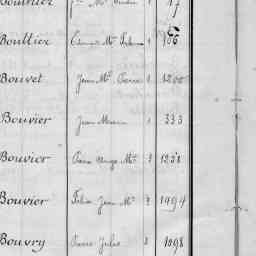 Bouthier
Bouttier 1 106
Bouvet Jean Mie Pierre 1 1200
Bouvier Jean Marie 1 333
Bouvier Pierre Ange Mie 3 1231
Bouvier Félix Jean Mie 3 1494
Bouvry Pierre Jules 3 1098